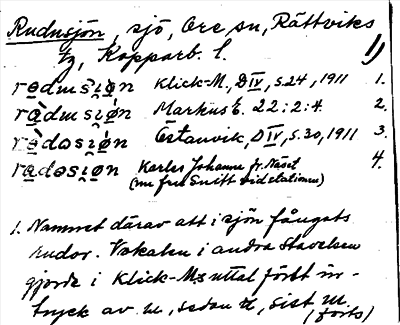 Rudusjön, sjö, Ore sn, Rättviks
tg, Kopparb. l. 1)
Klick-M., DIV, s.24, 1911 1.
Markus E. 22:2:4. 2.
Östanvik, DIV, s.30, 1911 3.
Karles Johanna fr. Näset 4.
(nu fru Snitt vid stationen)
1. Namnet därav att i sjön fångats
rudor. Vokalen i andra stavelsen
gjorde i Klick-M:s uttal först in-
tryck av u, sedan sist
(forts)